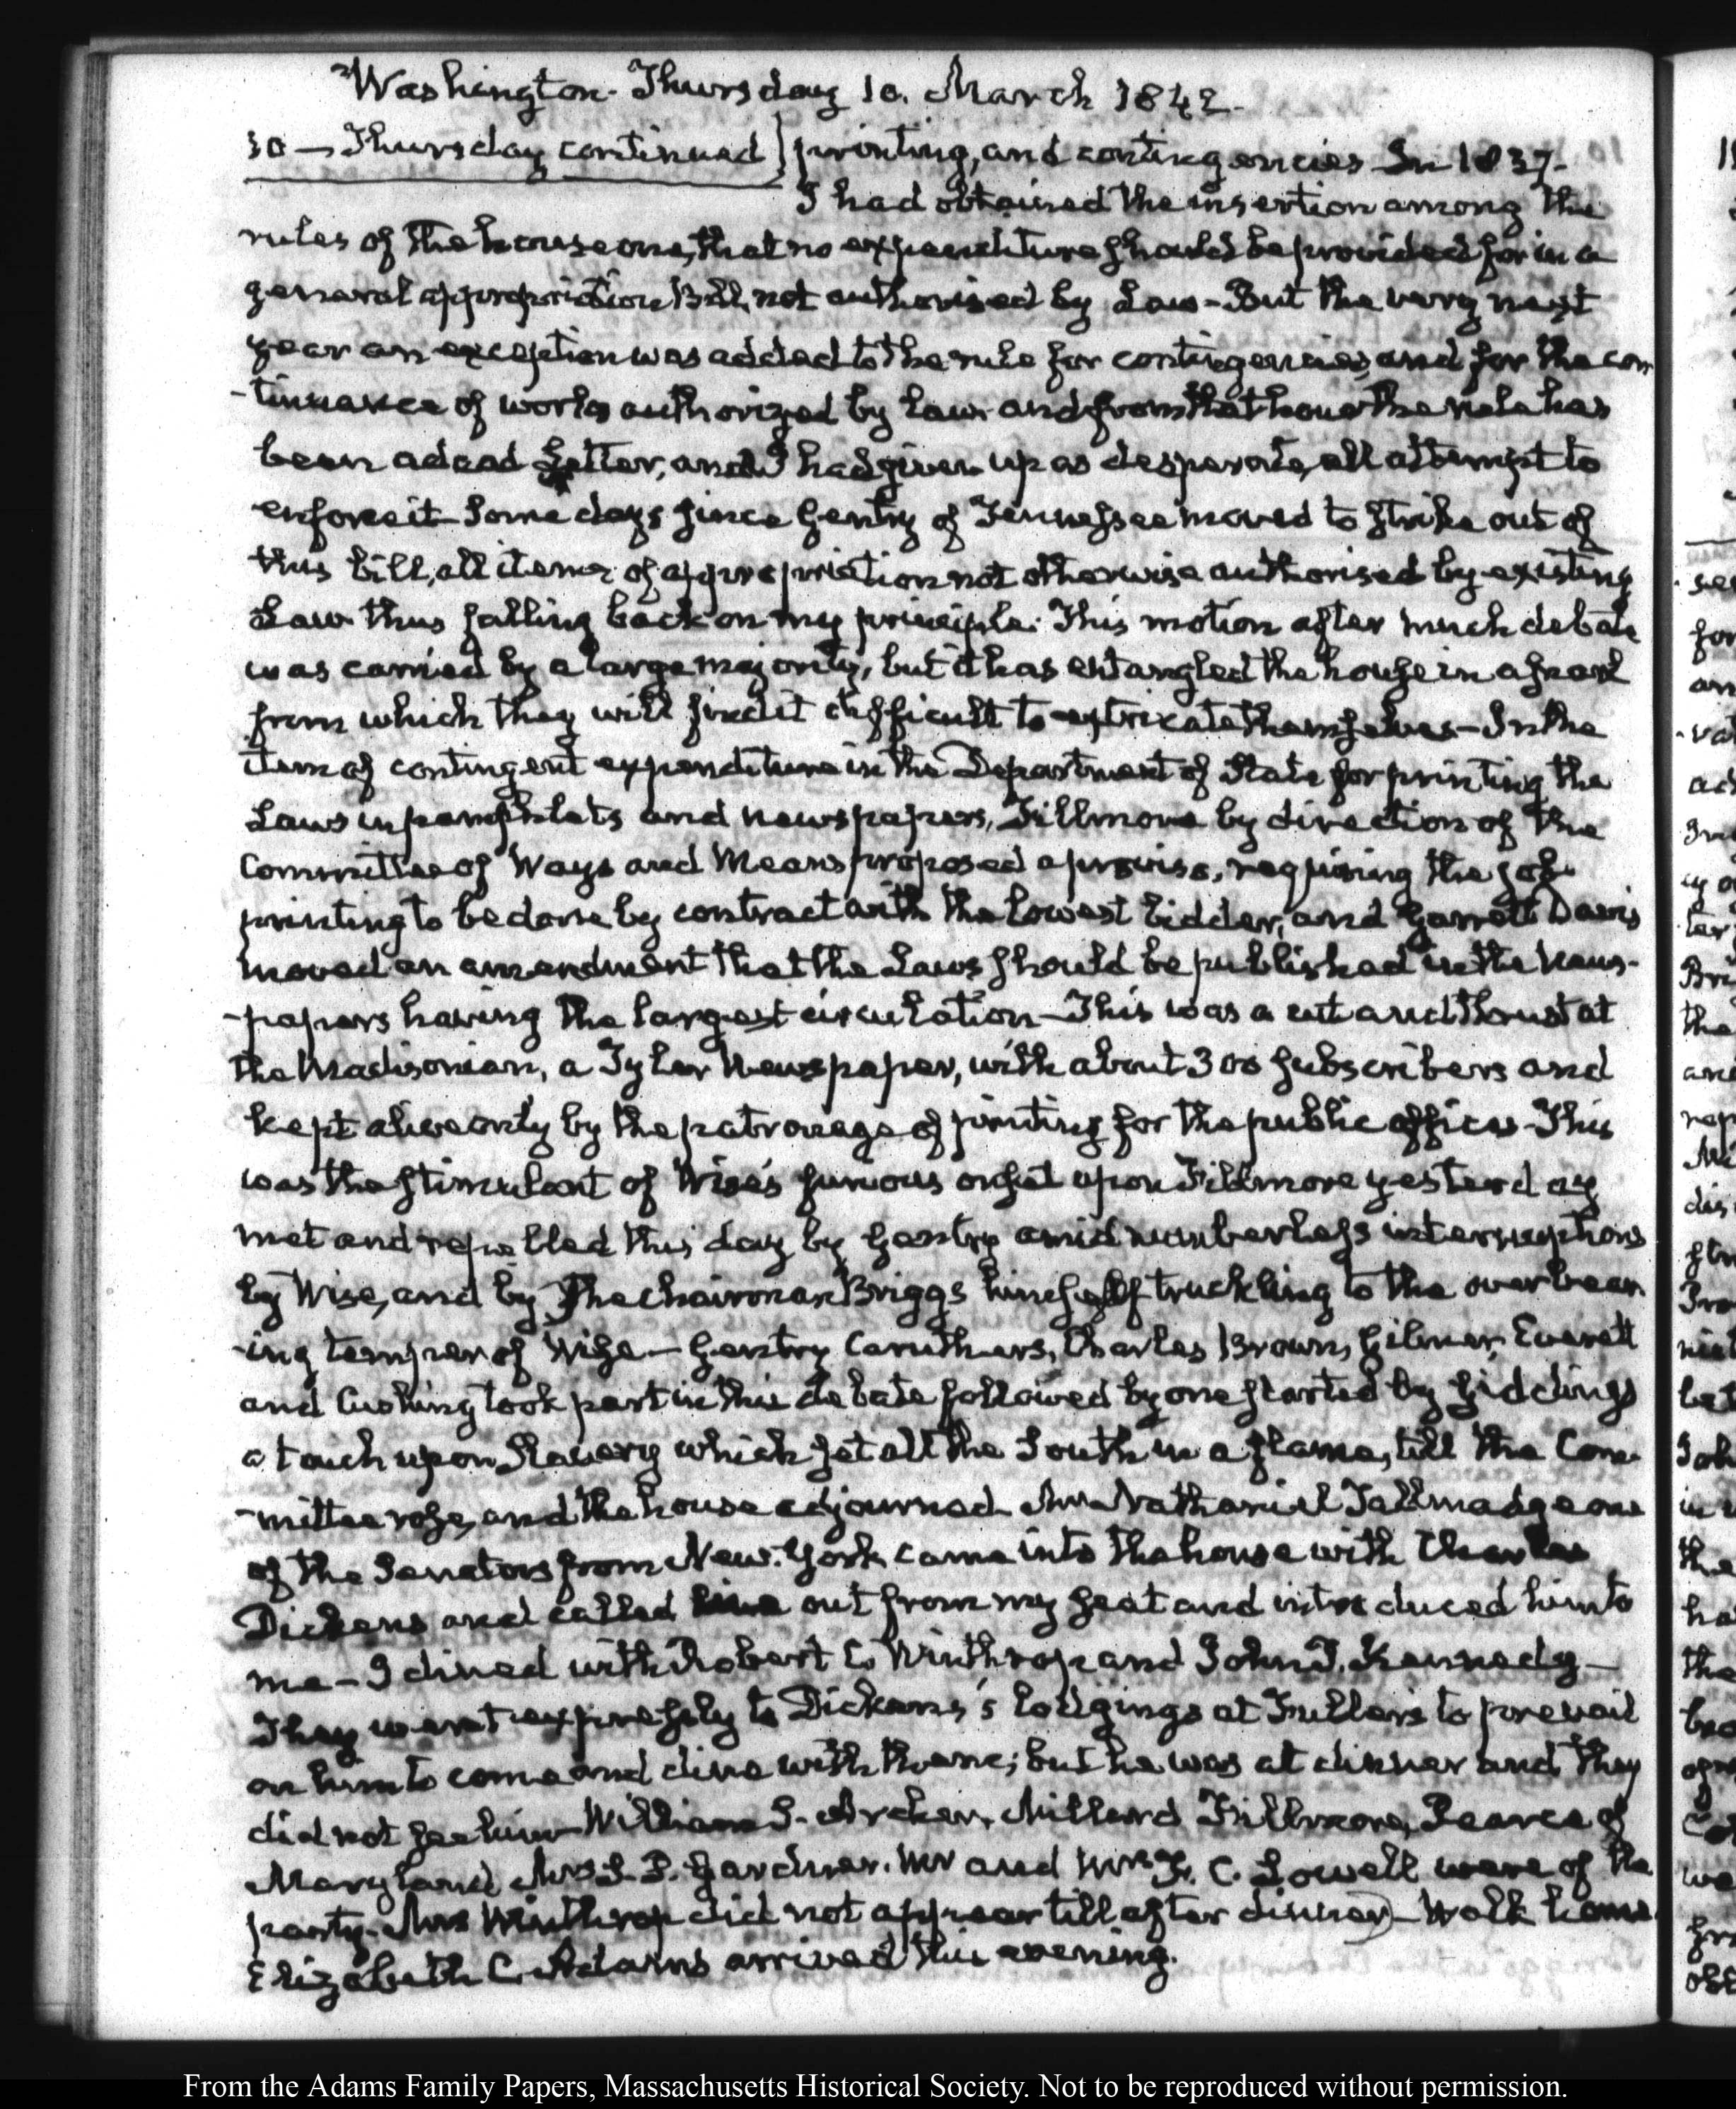 Washington. Thursday 10. March 1842.
10 — Thursday continued } printing, and contingencies In 1837.
I had obtained the insertion among the
rules of the house one, that no expenditure should be provided for in a
general appropriation Bill, not authorised by Law - But the very next
year an exception was added to the rule for contingencies, and for the con
-tinuance of works authorized by law and from that hour the rule has
been a dead Letter, and I had given up as desperate, all attempt to
enforce it Some days since Gentry of Tennessee moved to strike out of
this bill, all items of appropriation not otherwise authorised by existing
Law thus falling back on my principle. This motion after much debate
was carried by a large majority, but it has entangled the house in a snarl
from which they will find it difficult to extricate themselves - In the
item of contingent expenditure in the Department of State for printing the
Laws in pamphlets and newspapers, Fillmore by direction of the
Committee of Ways and Means proposed a proviso, requiring the job
printing to be done by contract with the lowest bidder, and Garrett Davis
moved an amendment that the Laws should be published in the News-
-papers having the largest circulation - This was a cut and thrust at
the Madisonian, a Tyler Newspaper, with about 300 subscribers and
kept alive only by the patronage of printing for the public offices - This
was the stimulant of Wise's furious onset upon Fillmore yesterday
met and repelled this day by Gentry amid numberless interruptions
by Wise, and by the chairman Briggs himself truckling to the overbear
-ing temper of Wise - Gentry Caruthers, Charles Brown, Gilmer, Everett
and Cushing took part in this debate followed by one started by Giddings
a touch upon Slavery which set all the South in a flame, till the Com-
-mittee rose, and the house adjourned Mr Nathaniel Tallmadge one
of the Senators from New-York, came into the house with Charles
Dickens and called out from my seat and introduced him to
me - I dined with Robert C. Winthrop and John P. Kennedy -
They went expressly to Dickens's lodgings at Fuller's to prevail
on him to come and dine with them; but he was at dinner and they
did not see him William S. Archer, Millard Fillmore, Pearce of
Maryland, Mrs S. P. Gardner. Mr and Mrs F. C. Lowell were of the
party. Mrs Winthrop did not appear till after dinner) - Walk home
Elizabeth C. Adams arrived this evening.
From the Adams Family Papers, Massachusetts Historical Society. Not to be reproduced without permission.